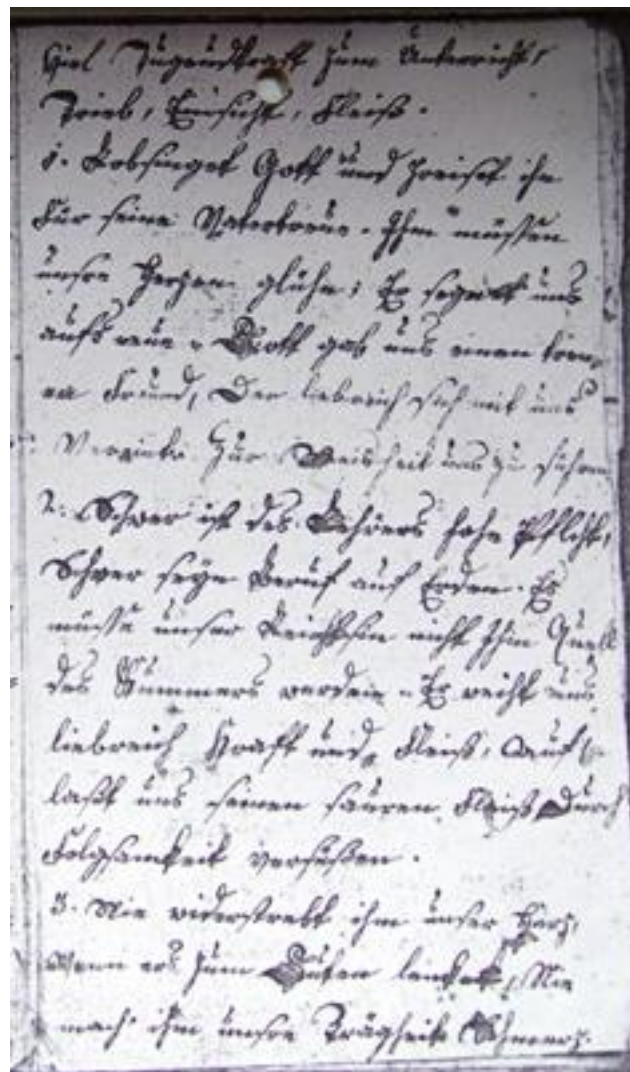 Viel Jugendkraft zum Unterricht,
Trieb, Einsicht, Fleiß.
1. Lobsinget Gott und preiset ihn
Für seine Vatertreue. Ihm müssen
unsre Herzen glühn; Er segnet uns
aufs neue. Gott gab uns einen treu-
en Freund, Der liebreich sich mit uns
Vereint Zur Weisheit uns zu führen
2. Schwer ist des Lehrers hohe Pflicht,
Schwer seyn Beruf auf Erden. Es
müsse unser Leichtsin nicht Ihm Quell
des Kummers werden. Er weiht uns
liebreich Kraft und Fleiß, Auf
laßt uns seinen sauren Fleiß Durch
Folgsamkeit versüßen.
3. Nie widerstrebt ihm unser Herz,
Wenn ers zum Guten lenket, Nie
mach ihm unsre Trägheit Schmerz.